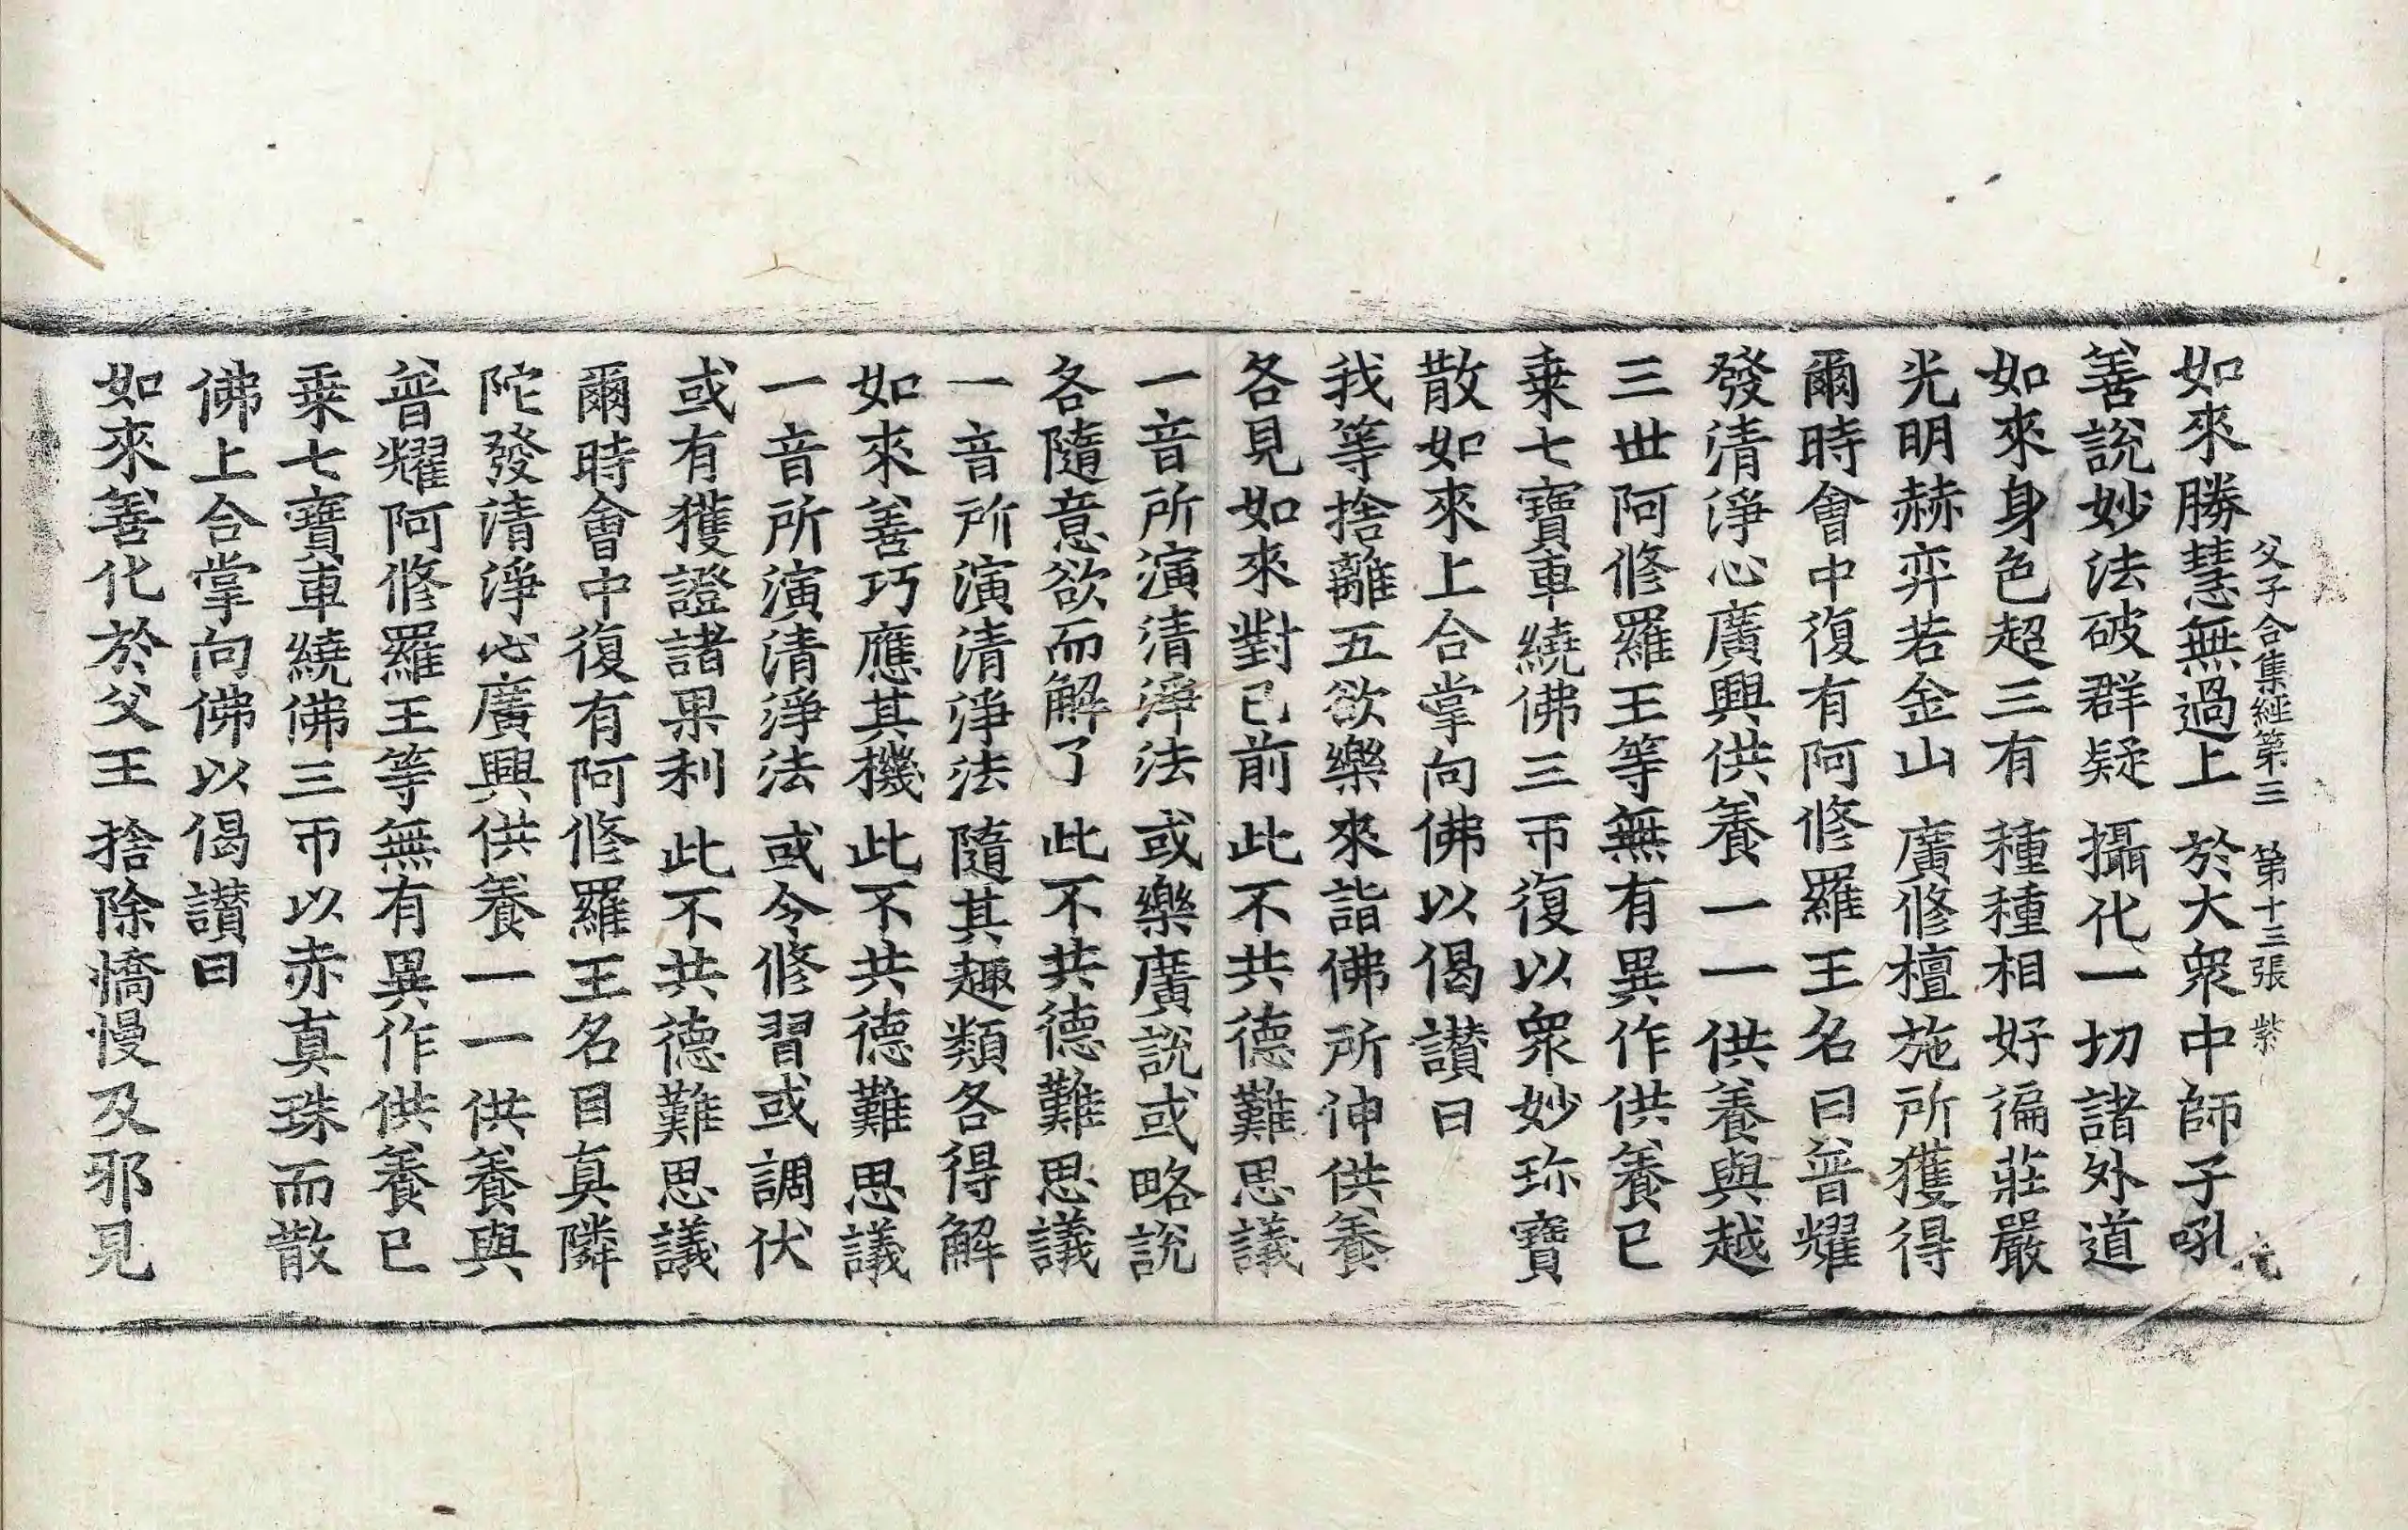 父子合集經第三 第十三張 紫
如來勝慧無過上 於大衆中師子吼
善說妙法破群疑 攝化一切諸外道
如來身色超三有 種種相好徧莊嚴
光明赫弈若金山 廣修檀施所獲得
爾時會中復有阿修羅王名曰普耀
發清淨心廣興供養一一供養與越
三世阿修羅王等無有異作供養已
乗七寶車繞佛三帀復以衆妙珎寶
散如來上合掌向佛以偈讃曰
我等捨離五欲樂 來詣佛所伸供養
各見如來對己前 此不共德難思議
一音所演清淨法 或樂廣說或略說
各隨意欲而解了 此不共德難思議
一音所演清淨法 隨其趣類各得解
如來善巧應其機 此不共德難思議
一音所演清淨法 或令修習或調伏
或有獲證諸果利 此不共德難思議
爾時會中復有阿修羅王名目真隣
陀發清淨心廣興供養一一供養與
普耀阿修羅王等無有異作供養已
乗七寶車繞佛三帀以赤真珠而散
佛上合掌向佛以偈讃曰
如來善化於父王 捨除憍慢及邪見